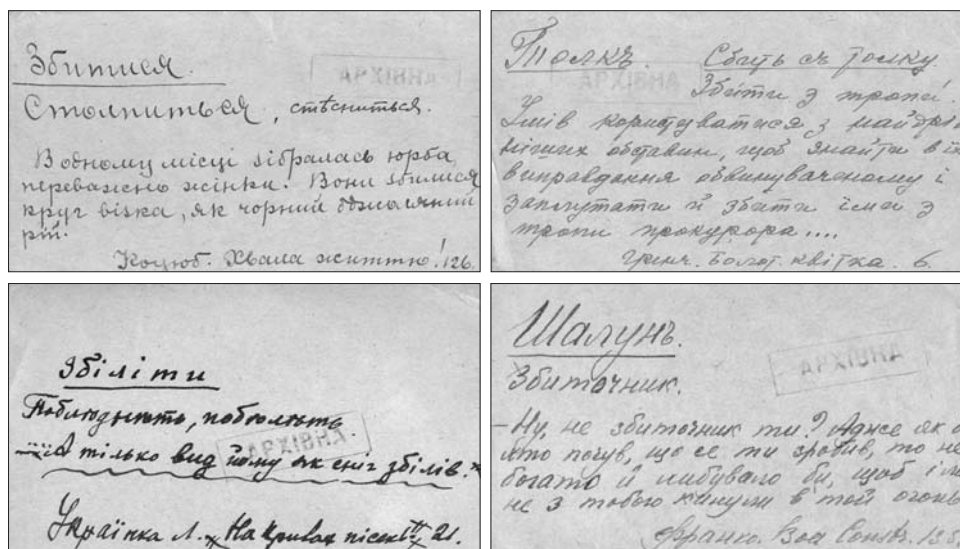 Збитися.
АРХІВНА
Столпиться, стѣсниться.
В одному місці зібралась юрба,
переважено жінки. Вони збилися
круг візка, як чорний
рій.
Коцюб. Хвала життю! 126.
Толкъ. Сбить съ толку
АРХІВНА
Збити з тропи.
Умів користуватися з найдрі
ніших обставин, щоб знайти в їх
виправдання обвинуваченому і
заплутати й збити їми з
тропи прокурора....
Грінч. Болот. квітка. 6.
Збіліти
АРХІВНА
А тілько вид йому як сніг збілів.
Українка Л. На Кривав пісні 21.
Шалунъ.
АРХІВНА
Збиточник.
– Ну, не збиточник ти? Адже як
хто почув, що се ти зробив, то не
богато й хибувало би, щоб і
не з тобою кинули в той огонь
Франко. Boa Constr.